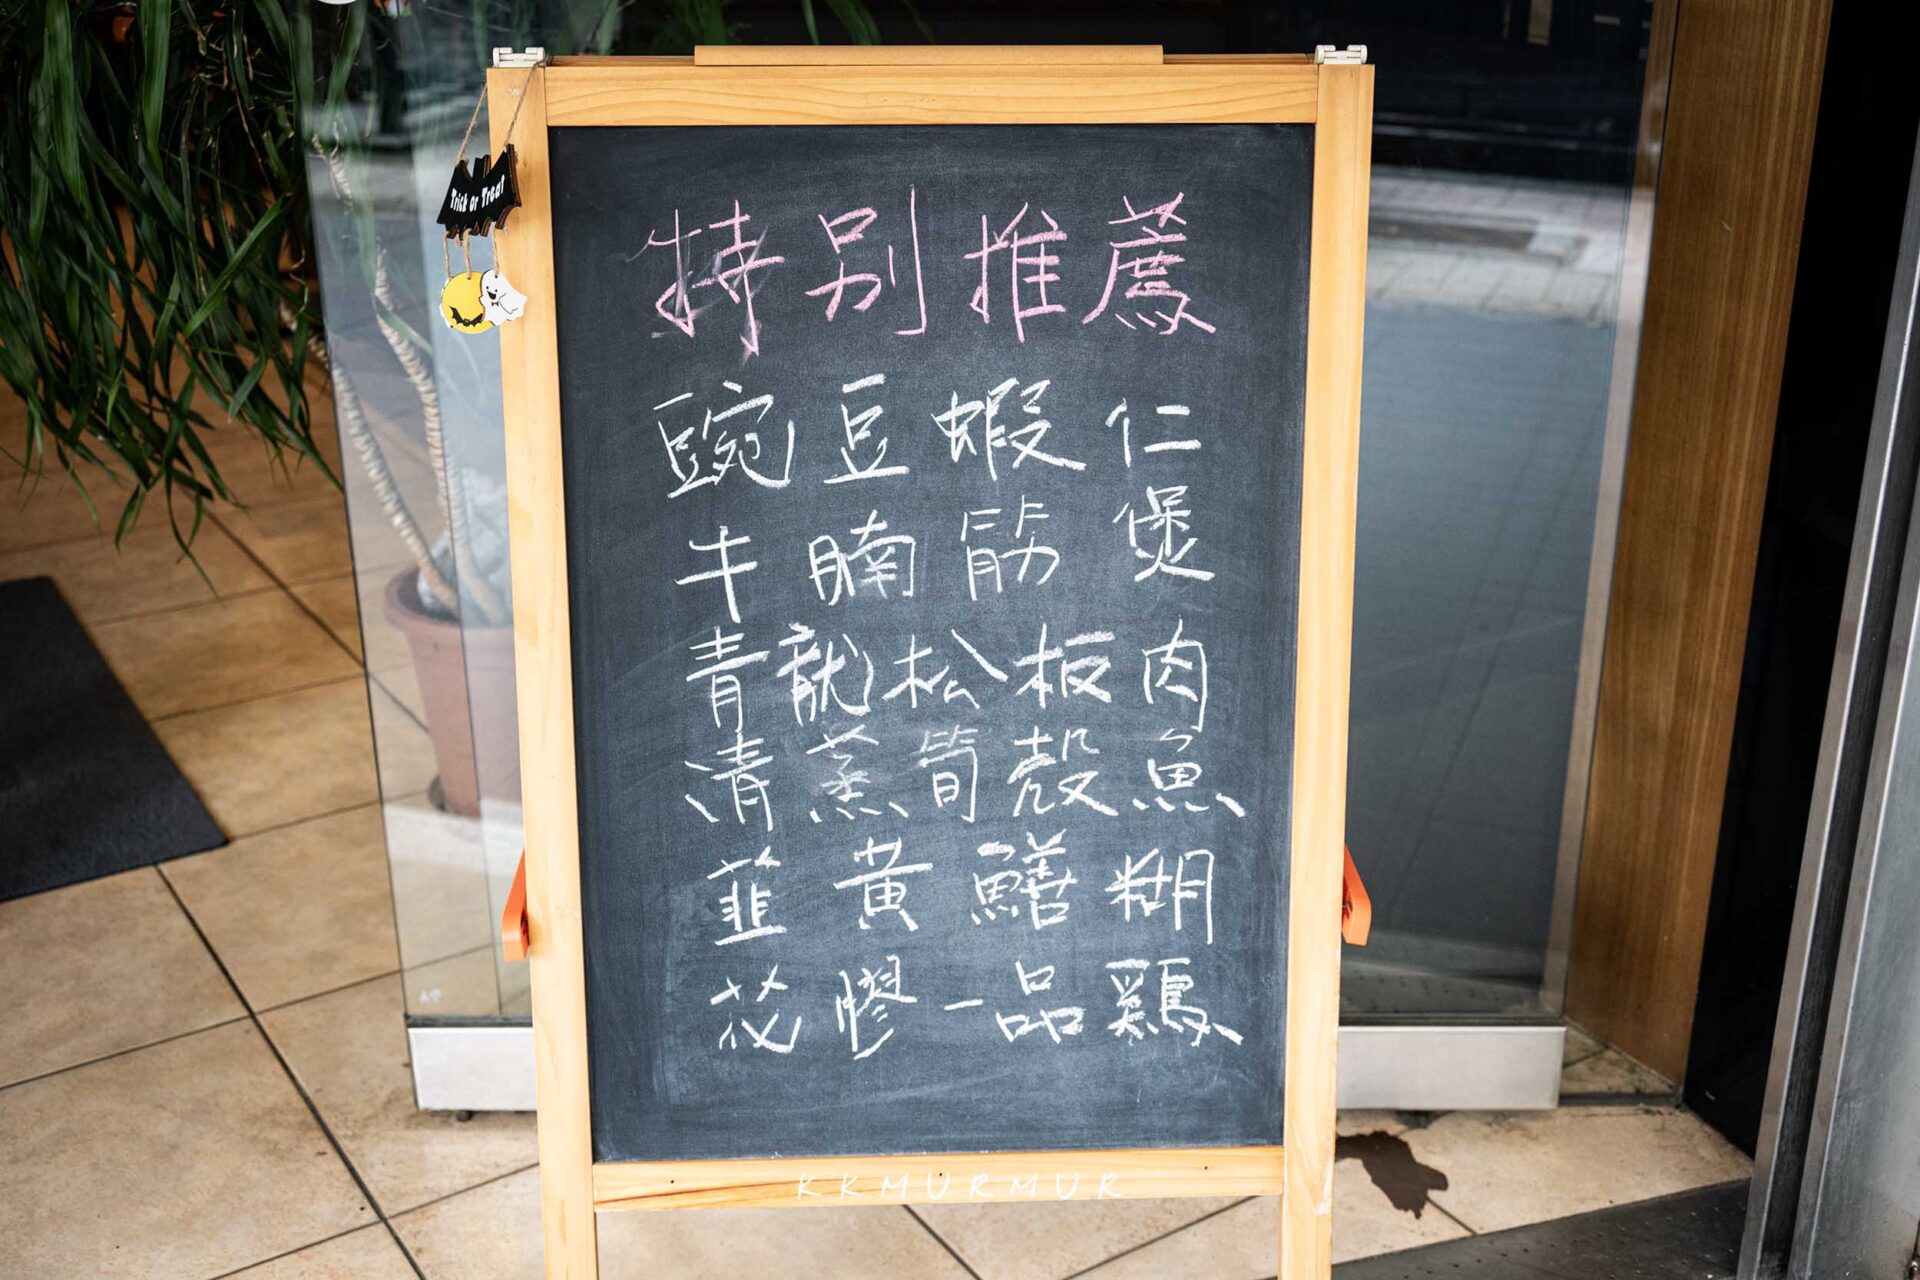 Trick or Treat
特别推薦
豌豆蝦仁
牛腩筋煲
青龍松板肉
清蒸筍殼魚
韮黃鱔糊
花膠一品鷄
KKMURMUR